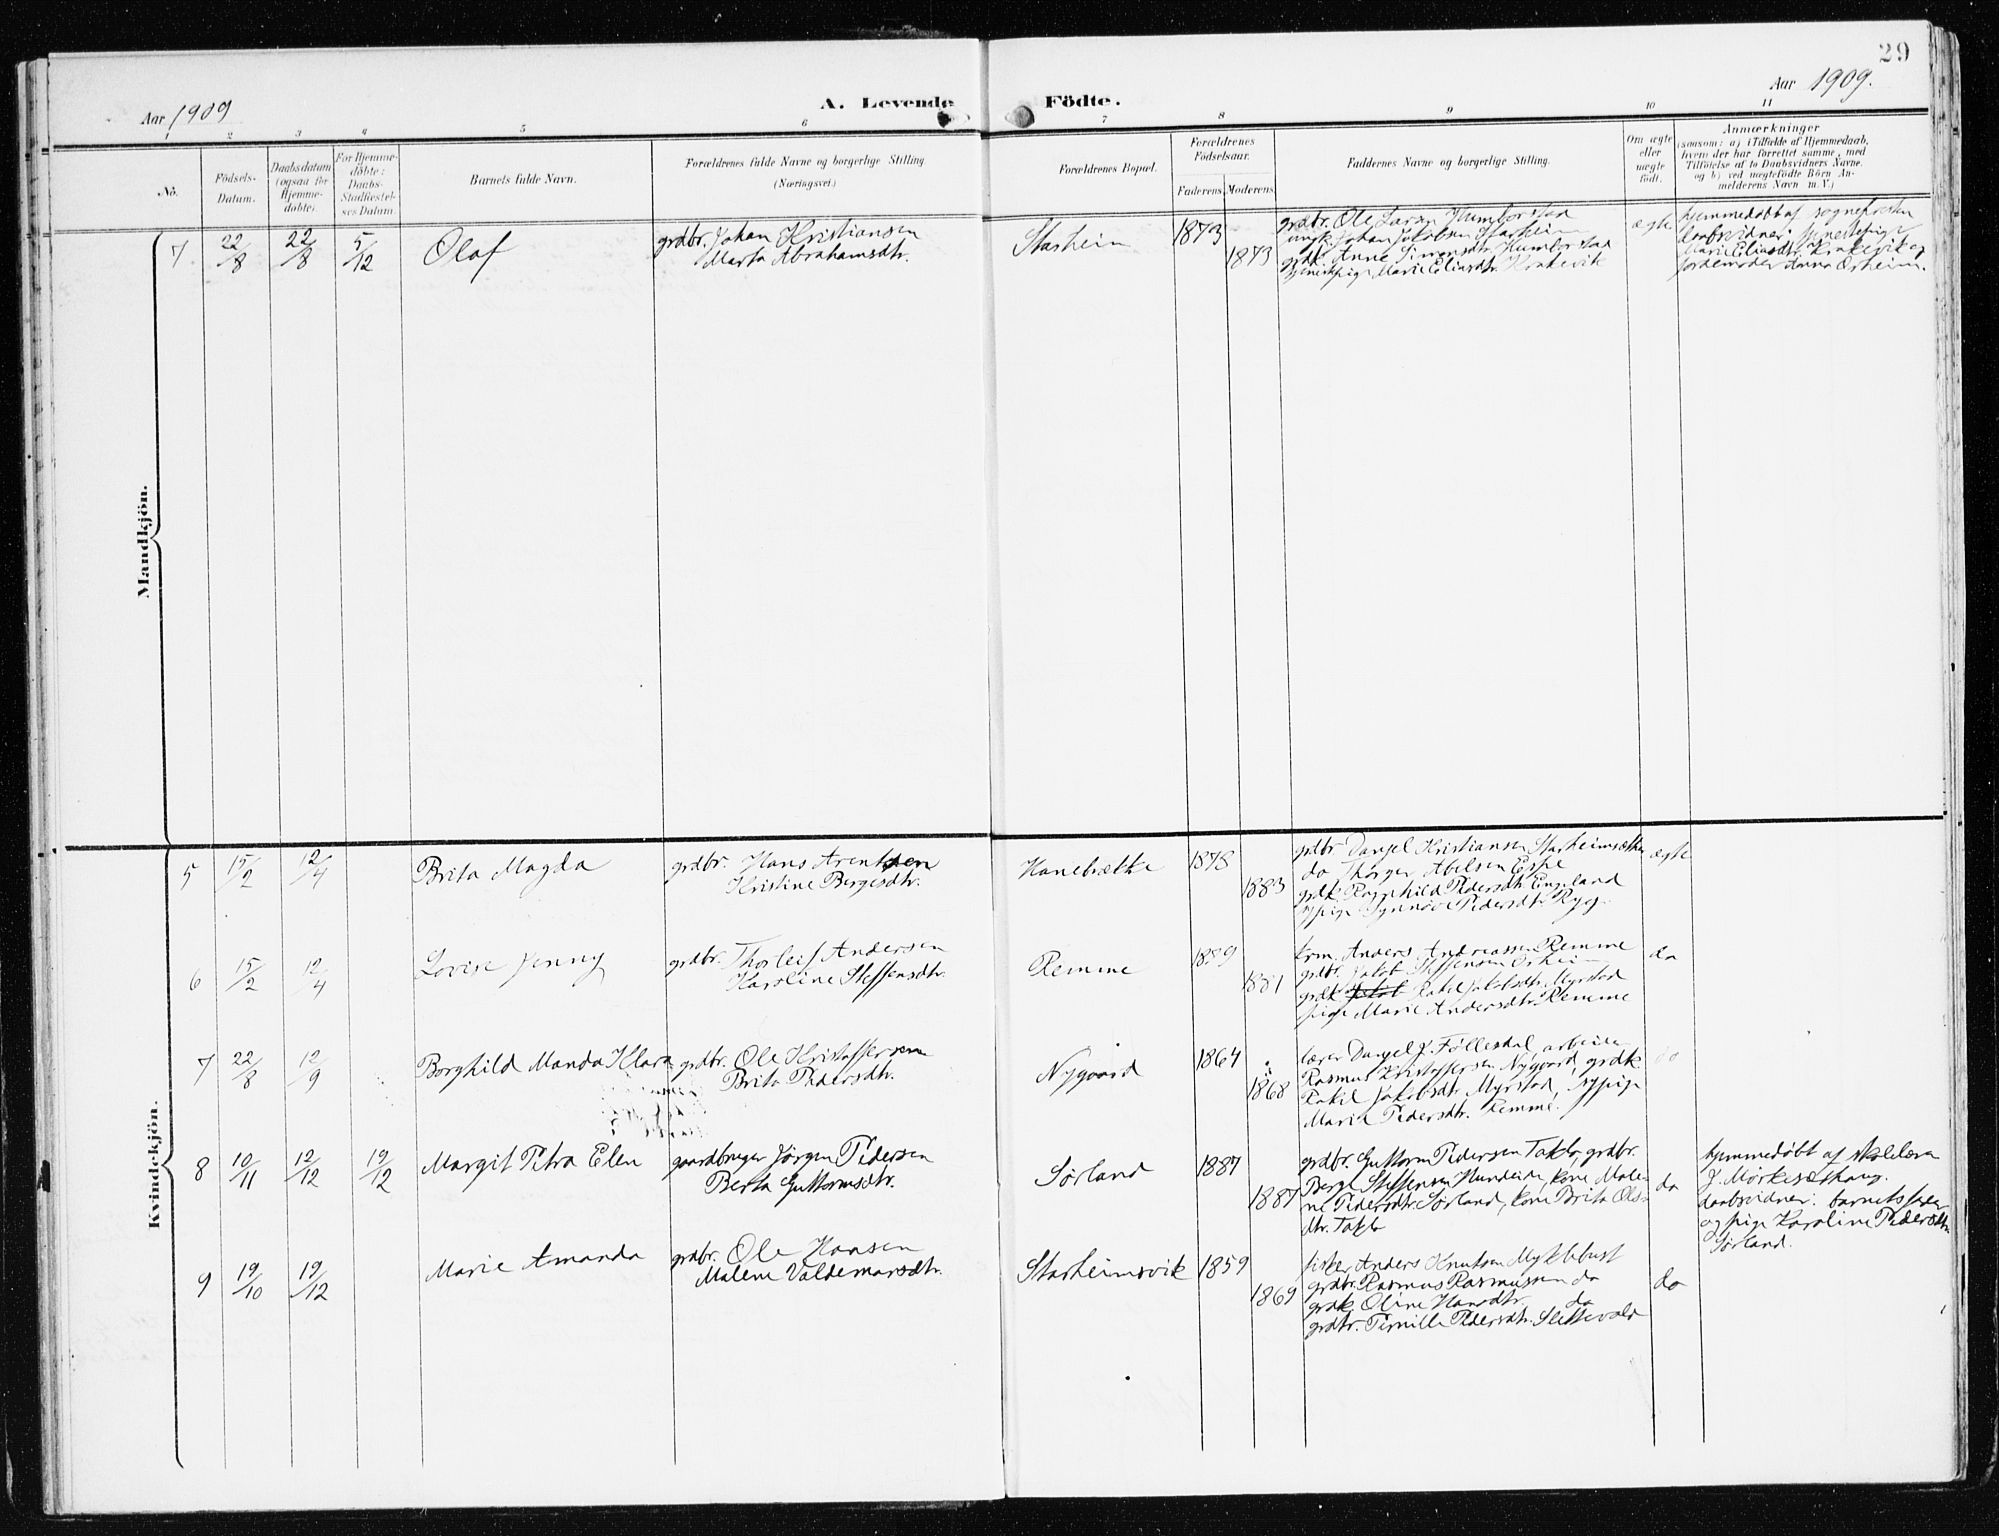 29
Aar 1909
A. Levende Födte.
Aar 1909.
1 2 3 4 5 6 7 8 9 10 11
No.
Födsels-Datum.
Daabsdatum (ogsaa for Hjemmedöbte).
For Hjemmedöbte: Daabs-Stadfæstelses Datum
Barnets fulde Navn.
Forældrenes fulde Navne og borgerlige Stilling.
(Næringsvei.)
Forældrenes Bopæl.
Forældrenes Födselsaar.
Faderens Moderens
Faddernes Navne og borgerlige Stilling.
Om ægte eller uægte födt.
Anmærkninger
(saasom: a) i Tilfælde af Hjemmedaab,
hvem der har forrettet samme, med
Tilföielse af to Daabsvidners Navne.
og b) ved uægtefödte Börn An-
melderens Navn m. V.)
Mandkjön.
7 22/8 22/8 5/12 Olaf
grdbr. Johan Kristiansen
Marta Abrahamsdtr.
Starheim 1873 1873
grdbr. Ole Larsn Humborstad
ungk. Johan Jakobsen Starheim
grdk. Anne Simensdtr. Humborstad
tjenestpige Marie Eliasdtr. Krakevik
ægte
hjemmedøbt af sognepresten
daabsvidner: tjenestepige
Marie Eliasdtr. Krakevik og
jordemoder Anna Orheim.
Kvindekjön.
5 15/2 12/4 Brita Magda
grdbr. Hans Arentsen
Kristine Bergesdtr.
Hanebrætte 1878 1883
grdbr Danjel Kristiansen Starheimsæther
do Thorger Abelsen Eske
grdk. Ragnhild Pedersdtr. Engeland
sypige Synnøve Pedersdtr. Ryg.
ægte
6 15/2 12/4 Lovise Jenny
grdbr. Thorleif Andersen
Karoline Steffensdtr.
Remme 1889 1881
krm. Anders Andreassen Remme
grdbr. Jakob Steffensen Orheim
grdk. Rakel Jakobsdtr. Myrstad
pige Marie Andersdtr. Remme
do
7 22/8 12/9 Borghild Manda Klara
grdbr. Ole Kristoffersen
Brita Pedersdtr.
Nygaard 1864 1868
lærer Danjel J. Føllesdal, arbeider
Rasmus Kristoffersen Nygaard, grdk.
Rakel Jakobsdtr. Myrstad, sypige
Marie Pedersdtr. Remme.
do
8 10/11 12/12 19/12 Margit Petra Elen
gaardbruger Jørgen Pedersen
Berta Guttormsdtr.
Sørland 1887 1887
grdbr. Guttorm Pedersen Taklo, grdbr.
Berge Steffensen Hundeide, kone Male-
ne Pedersdtr. Sørland, kone Brita Ols-
dtr. Taklo
do
hjemmedøbt af skolelærer
J. Mørkesæthaug.
daabsvidner: barnets far
og pige Karoline Pedersdtr.
Sørland.
9 19/10 19/12 Marie Amanda
grdbr. Ole Hansen
Malene Valdemarsdtr.
Starheimsvik 1859 1869
fisker Anders Knutsen Myklebust
grdbr. Rasmus Rasmussen do
grdk. Oline Hansdtr. do
grdbr. Pernille Pedersdtr. Slettevold
do